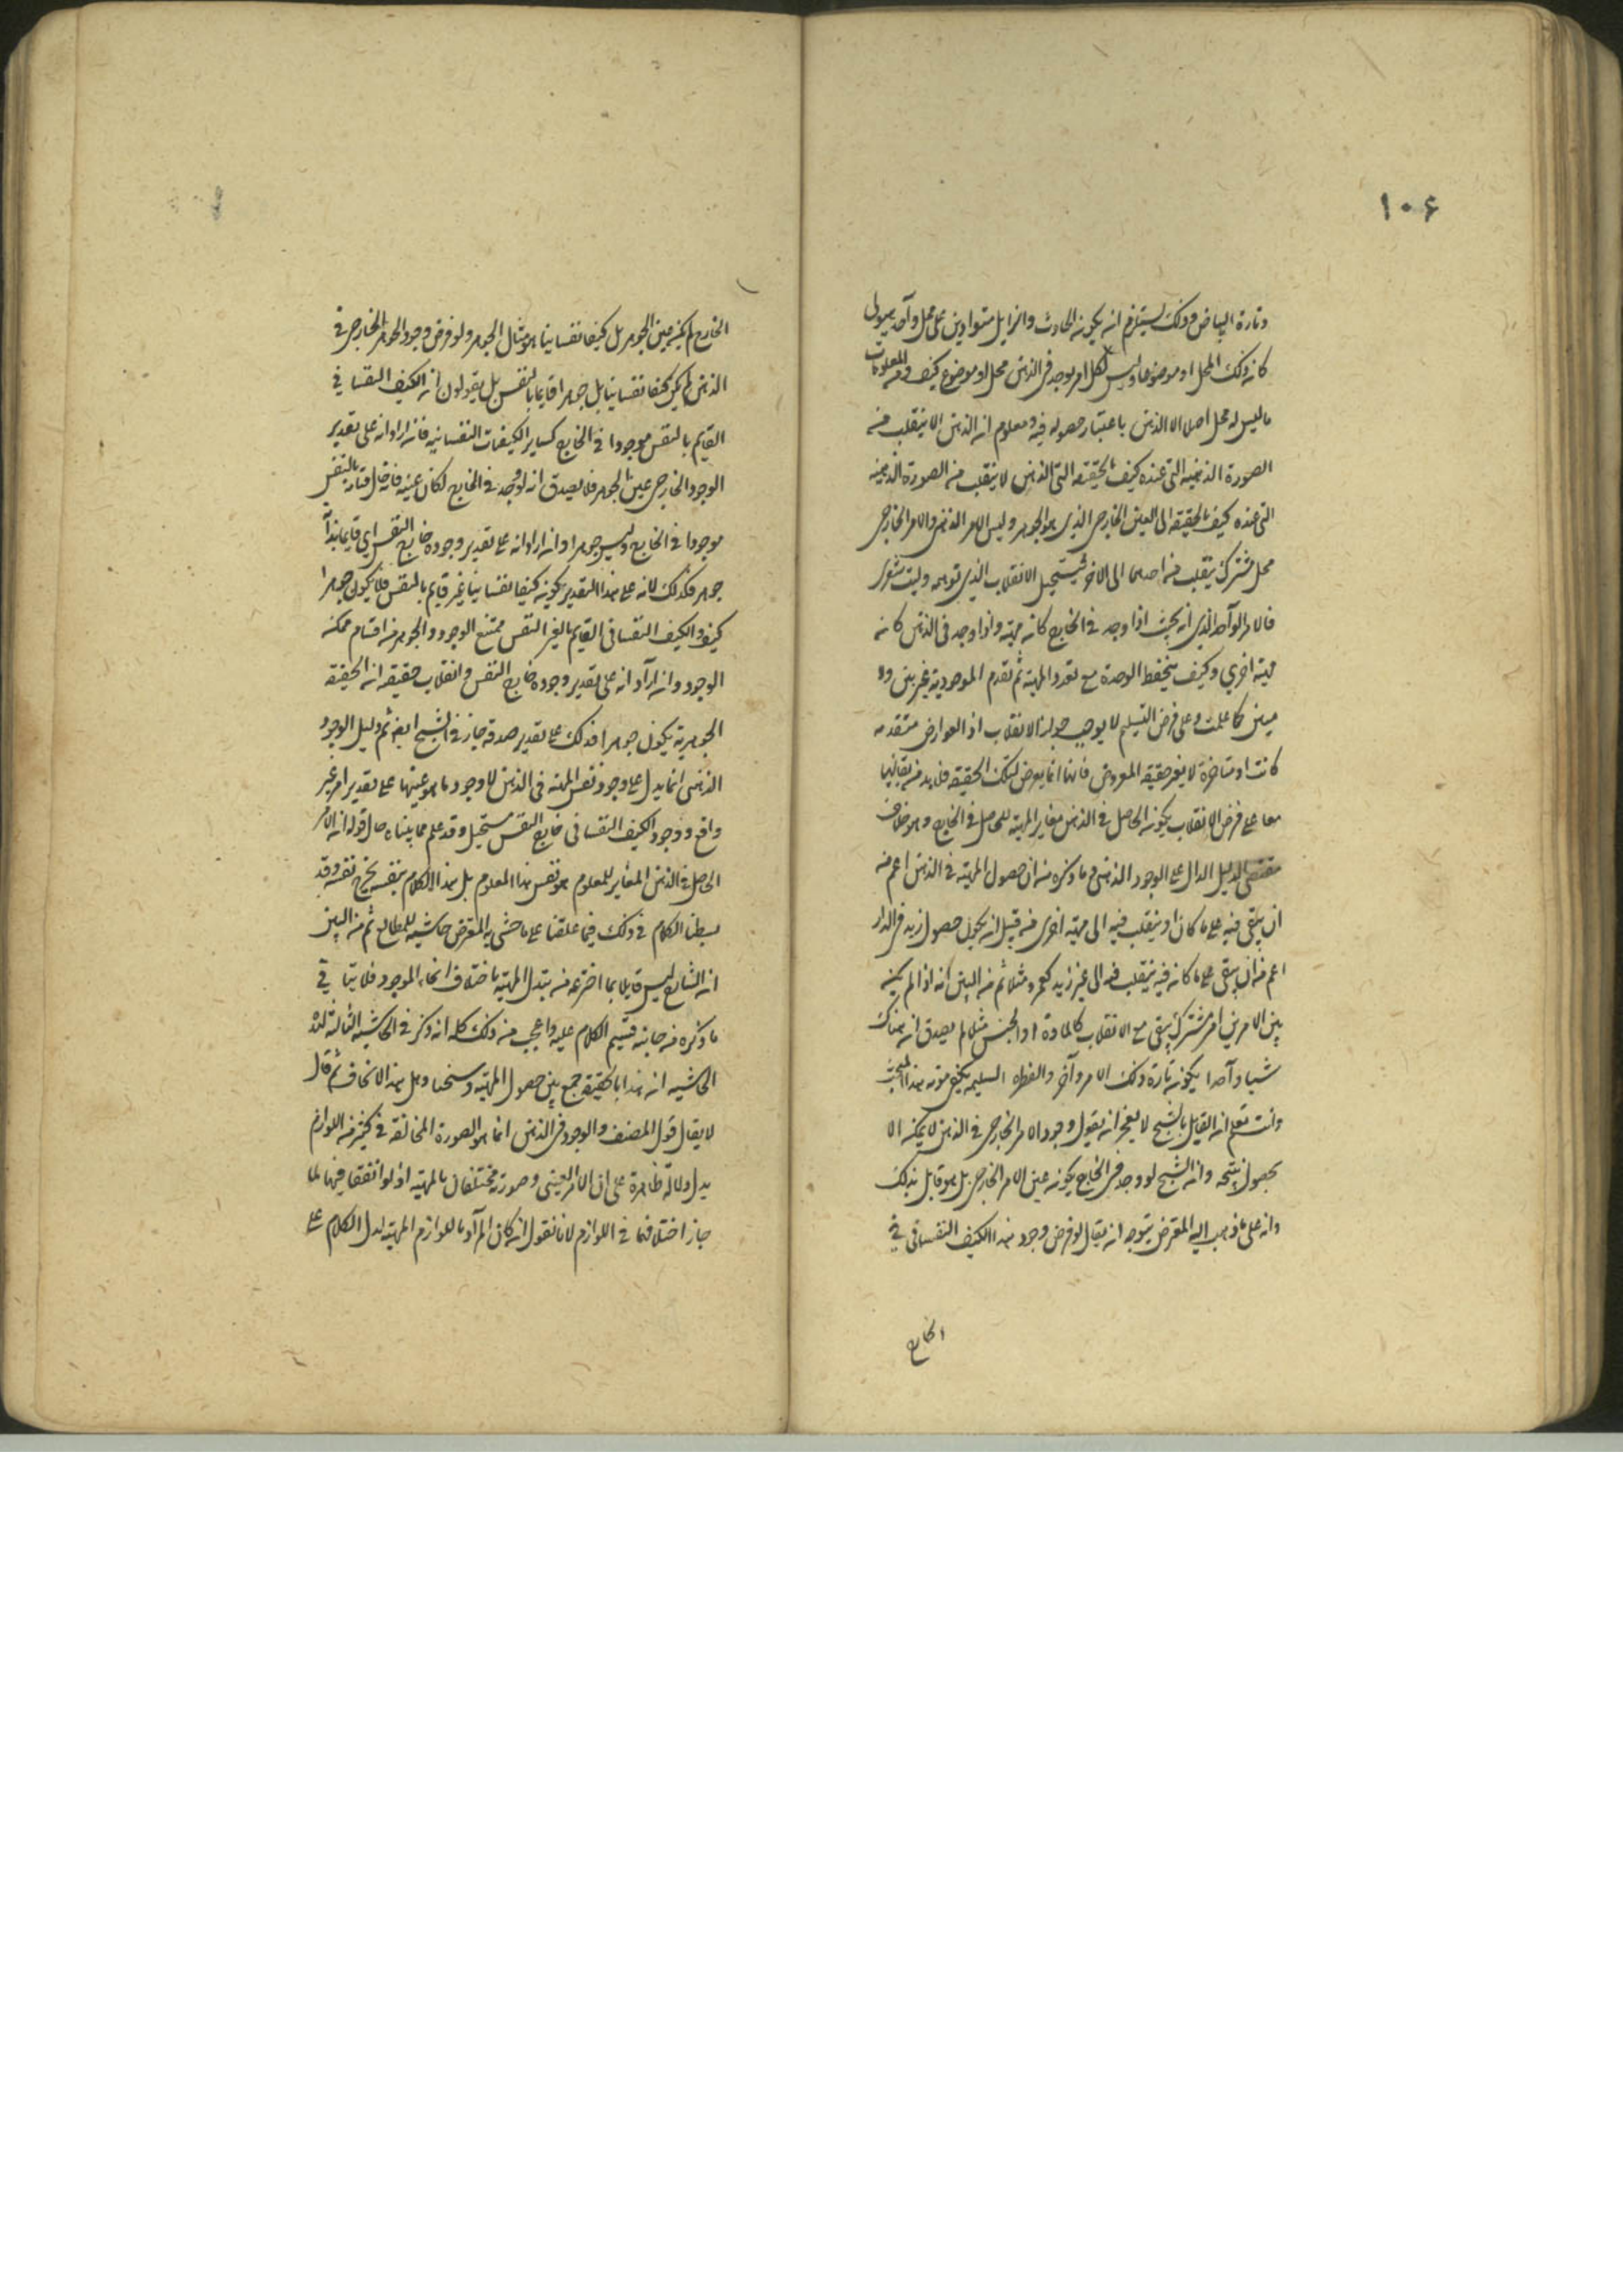 ۱۰۶
وتارة البياض وذلك يستلزم ان يكون الحادث والزايل متواردين على محل واحد هيولى
كان ذلك المحل او موضوعا وليس لكل امر يوجد في الذهن محل او موضوع كيف ومن المعلومات
ما ليس له محل اصلا الا الذهن باعتبار حصوله فيه ومعلوم ان الذهن لا ينقلب من
الصورة الذهنية التي عنده كيف بالحقيقة التي الذهن لا ينقلب من الصورة الذهنية
التي عنده كيف بالحقيقة الى العين الخارجي الذي هو الجوهر وليس للامر الذهني والامر الخارجي
محل مشترك ينقلب من احدهما الى الاخر فيستحيل الانقلاب الذي توهمه وليت شعري
فالامر الواحد الذي انه بحيث اذا وجد في الخارج كان مهية واذا وجد في الذهن كان
مهية اخرى وكيف ينحفظ الوحدة مع تعدد المهية ثم تقدم الموجودية غير بين ولا
مبين كما علمت وعلى فرض التسليم لا يوجب جواز الانقلاب اذ العوارض متقدمة
كانت او متاخرة لا يغير حقيقة المعروض فانها انما يعرض لتلك الحقيقة فلا بد من بقائها
معا على فرض الانقلاب يكون الحاصل في الذهن مغاير المهية للحاصل في الخارج وهو خلاف
مقتضى الدليل الدال على الوجود الذهني وما ذكره من ان حصول المهية في الذهن اعم من
ان يبقى فيه على ما كان او ينقلب فيه الى مهية اخرى من قبيل ان يقول حصول زيد في الدار
اعم من ان يبقى على ما كان فيه ينقلب فيه الى غير زيد كعمرو مثلا ثم من البين انه اذا لم يكن
بين الامرين امر مشترك يبقى مع الانقلاب كالمادة او الجنس مثلا لم يصدق ان هناك
شيئا واحدا يكون تارة ذلك الامر وآخر والفطرة السليمة يكفي مونة هذا المبحث
وانت تعلم ان القايل بالشبح لا يعجز ان يقول وجود الامر الخارجي في الذهن لا يمكن الا
بحصول شبحه وان الشبح لو وجد في الخارج يكون عين الامر الخارجي بل هو قابل بذلك
وانه على ما ذهب اليه المعترض يتوجه ان يقال لو فرض وجود هذا الكيف النفساني في
الخارج
الخارج لم يكن عين الجوهر بل كيفا نفسانيا هو مثال الجوهر ولو فرض وجود الجوهر الخارجي في
الذهن لم يكن كيفا نفسانيا بل جوهرا قايما بالنفس بل يقولون ان الكيف النفساني
القايم بالنفس موجودا في الخارج كساير الكيفيات النفسانية فان اراد انه على تقدير
الوجود الخارجي عين الجوهر فلا يصدق انه لو وجد في الخارج لكان عينه فانه حال قيامه بالنفس
موجود في الخارج وليس جوهرا وان اراد انه على تقدير وجوده خارج النفس اي قايما بذاته
جوهر فكذلك لانه على هذا التقدير يكون كيفا نفسانيا غير قايم بالنفس فلا يكون جوهرا
كيف والكيف النفساني القايم بالغير النفس ممتنع الوجود والجوهر من اقسام ممكن
الوجود وان اراد انه على تقدير وجوده خارج النفس وانقلاب حقيقة الى الحقيقة
الجوهرية يكون جوهرا فذلك على تقدير صدقه جاز في الشبح ايضا ثم دليل الوجود
الذهني انما يدل على وجود نفس المهية في الذهن لا وجود ما هو عينها على تقدير امر غير
واقع ووجود الكيف النفساني خارج النفس مستحيل وقد علم مما بيناه حال قوله ان الامر
الحاصل في الذهن المغاير للمعلوم هو نفس هذا المعلوم بل هذا الكلام بنفسه يجرح نفسه وقد
بسطنا الكلام في ذلك فيما علقنا على ما حشى به المعترض حاشية المطالع ثم من البين
ان الشارح ليس قايلا بما اخترعه من تبدل المهية باختلاف انحاء الوجود فلا يتاتى
ما ذكره من جانبه فتيم الكلام عليه واعجب من ذلك كله انه ذكر في الحاشية الثالثة لهذه
الحاشية ان هذا بالحقيقة جمع بين حصول المهية وشبحها وهل هذا الا تناف ثم قال
لا يقال قول المصنف والوجود في الذهن انما هو الصورة المخالفة في كثير من اللوازم
يدل دلالة ظاهرة على ان الامر العيني وصورته مختلفان بالمهية اذ لو اتفقا فيها لما
جاز اختلافهما في اللوازم لانا نقول ان كان المراد باللوازم المهية لدل الكلام على